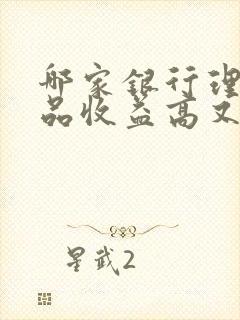 哪家银行理
品收益高又
星武2